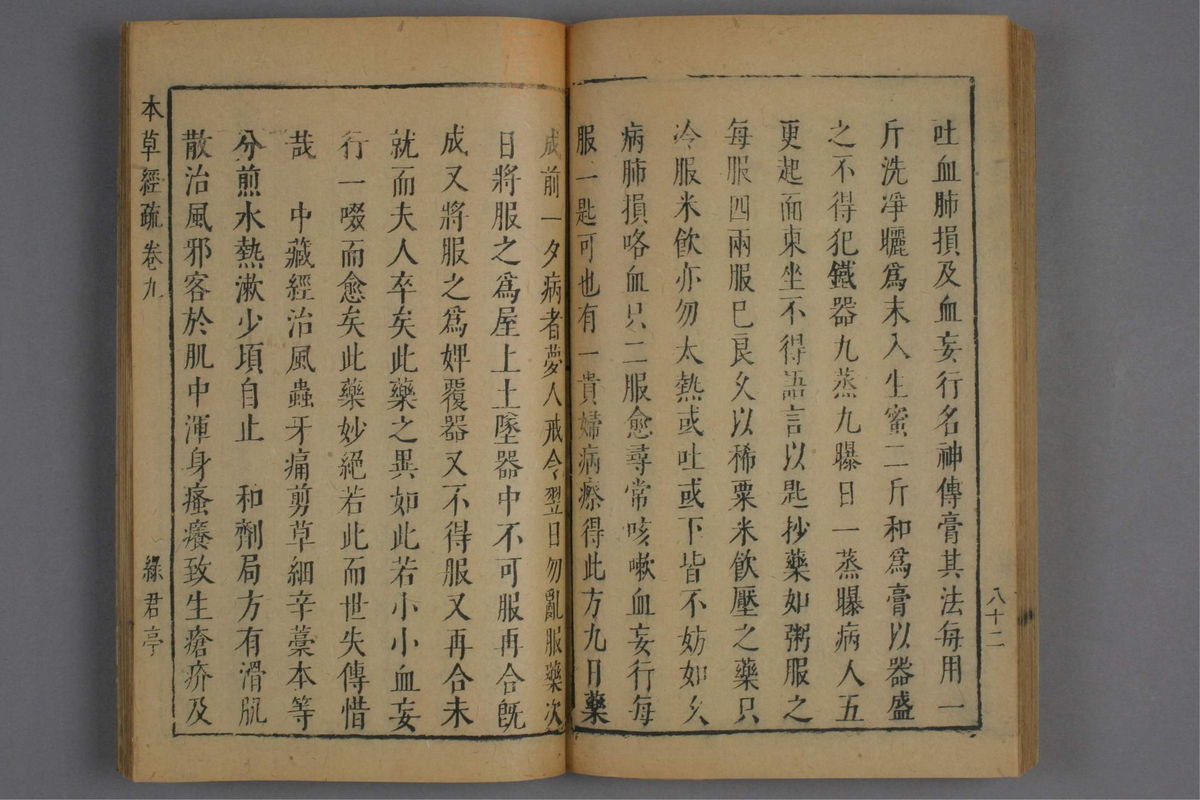 吐血肺損及血妄行名神傳膏其法每用一
斤洗凈曬爲末入生蜜二斤和爲膏以器盛
之不得犯鐵器九蒸九曝日一蒸曝病人五
更起面東坐不得語言以匙抄藥如粥服之
每服四兩服巳良久以稀粟米飲壓之藥只
冷服米飲亦勿太熱或吐或下皆不妨如久
病肺損咯血只二服愈尋常咳嗽血妄行每
服一匙可也有一貴婦病瘵得此方九日藥
八十二
成前一夕病者夢人戒令翌日勿亂服藥次
日將服之爲屋上土墜器中不可服再合旣
成又將服之爲婢覆器又不得服又再合未
就而夫人卒矣此藥之異如此若小小血妄
行一啜而愈矣此藥妙絕若此而世失傳惜
哉 中藏經治風蟲牙痛剪草細辛藁本等
分煎水熱漱少頃自止 和劑局方有滑肌
散治風邪客於肌中渾身瘙癢致生瘡疥及
本草經疏 卷九 綠君亭